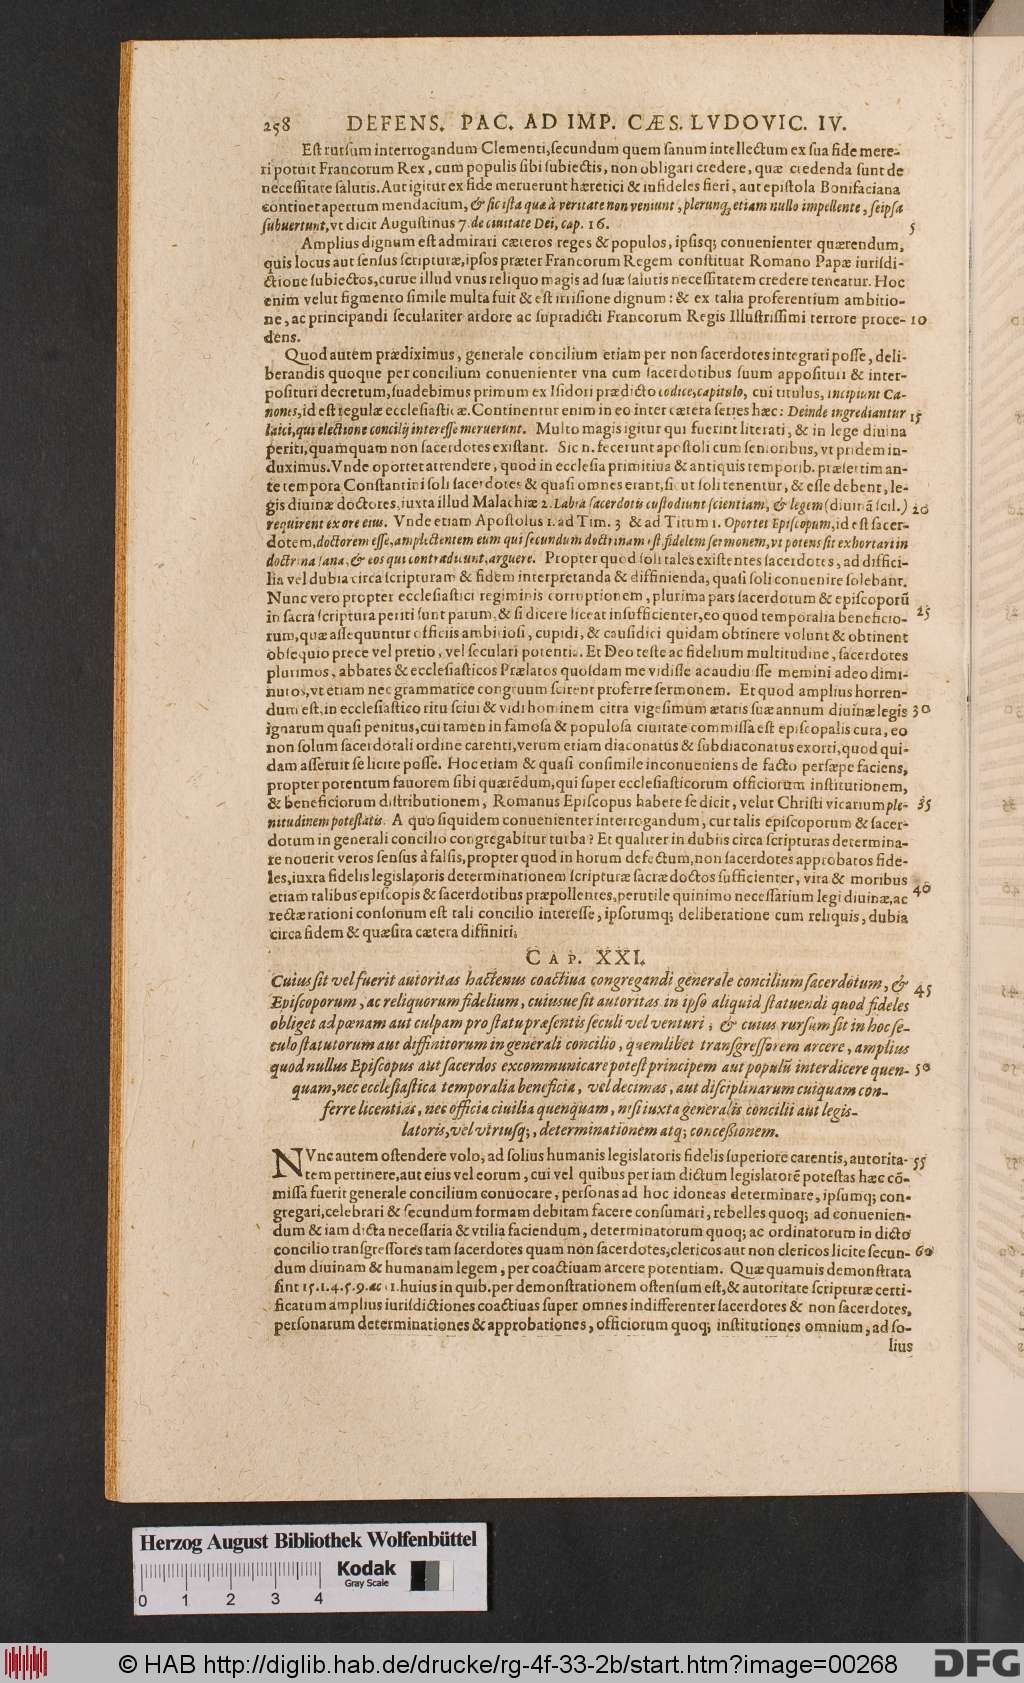 258 DEFENS. PAC. AD IMP. CÆS. LVDOVIC. IV.
Est rursum interrogandum Clementi, secundum quem sanum intellectum ex sua fide mere-
ri potuit Francorum Rex, cum populis sibi subiectis, non obligari credere, quæ credenda sunt de
necessitate salutis. Aut igitur ex fide meruerunt hæretici & infideles fieri, aut epistola Bonifaciana
continet apertum mendacium, & sic ista quæ à veritate non veniunt, plerunq; etiam nullo impellente, seipsa
subuertunt, vt dicit Augustinus 7. de ciuitate Dei, cap. 16. 5
Amplius dignum est admirari cæteros reges & populos, ipsisq; conuenienter quærendum,
quis locus aut sensus scripturæ, ipsos præter Francorum Regem constituat Romano Papæ iurisdi-
ctione subiectos, curue illud vnus reliquo magis ad suæ salutis necessitatem credere teneatur. Hoc
enim velut figmento simile multa fuit & est irrisione dignum: & ex talia proferentium ambitio-
ne, ac principandi seculariter ardore ac supradicti Francorum Regis Illustrissimi terrore proce- 10
dens.
Quod autem prædiximus, generale concilium etiam per non sacerdotes integrari posse, deli-
berandis quoque per concilium conuenienter vna cum sacerdotibus suum apposituri & inter-
posituri decretum, suadebimus primum ex Isidori prædicto codice, capitulo, cui titulus, incipiunt Ca-
nones, id est regulæ ecclesiasticæ. Continentur enim in eo inter cætera series hæc: Deinde ingrediantur 15
laici, qui electione concilij interesse meruerunt. Multo magis igitur qui fuerint literati, & in lege diuina
periti, quamquam non sacerdotes existant. Sic n. fecerunt apostoli cum senioribus, vt pridem in-
duximus. Vnde oportet attendere, quod in ecclesia primitiua & antiquis temporib. præsertim an-
te tempora Constantini soli sacerdotes & quasi omnes erant, sicut soli tenentur, & esse debent, le-
gis diuinæ doctores, iuxta illud Malachiæ 2. Labia sacerdotis custodiunt scientiam, & legem (diuinā scil.) 20
requirent ex ore eius. Vnde etiam Apostolus 1. ad Tim. 3 & ad Titum 1. Oportet Episcopum, id est sacer-
dotem, doctorem esse, amplectentem eum qui secundum doctrinam est fidelem sermonem, vt potens sit exhortari in
doctrina sana, & eos qui contradicunt, arguere. Propter quod soli tales existentes sacerdotes, ad diffici-
lia vel dubia circa scripturam & fidem interpretanda & diffinienda, quasi soli conuenire solebant.
Nunc vero propter ecclesiastici regiminis corruptionem, plurima pars sacerdotum & episcoporū
in sacra scriptura periti sunt parum, & si dicere liceat insufficienter, eo quod temporalia beneficio- 25
rum, quæ assequuntur officiis ambitiosi, cupidi, & causidici quidam obtinere volunt & obtinent
obsequio prece vel pretio, vel seculari potentia. Et Deo teste ac fidelium multitudine, sacerdotes
plurimos, abbates & ecclesiasticos Prælatos quosdam me vidisse ac audiuisse memini adeo dimi-
nutos, vt etiam nec grammatice congruum scirent proferre sermonem. Et quod amplius horren-
dum est, in ecclesiastico ritu sciui & vidi hominem citra vigesimum ætatis suæ annum diuinæ legis 30
ignarum quasi penitus, cui tamen in famosa & populosa ciuitate commissa est episcopalis cura, eo
non solum sacerdotali ordine carenti, verum etiam diaconatus & subdiaconatus exorti, quod qui-
dam asseruit se licite posse. Hoc etiam & quasi consimile inconueniens de facto persæpe faciens,
propter potentum fauorem sibi quærēdum, qui super ecclesiasticorum officiorum institutionem,
& beneficiorum distributionem, Romanus Episcopus habere se dicit, velut Christi vicarium ple- 35
nitudinem potestatis. A quo siquidem conuenienter interrogandum, cur talis episcoporum & sacer-
dotum in generali concilio congregabitur turba? Et qualiter in dubiis circa scripturas determina-
re nouerit veros sensus à falsis, propter quod in horum defectum, non sacerdotes approbatos fide-
les, iuxta fidelis legislatoris determinationem scripturæ sacræ doctos sufficienter, vita & moribus
etiam talibus episcopis & sacerdotibus præpollentes, perutile quinimo necessarium legi diuinæ, ac 40
rectæ rationi consonum est tali concilio interesse, ipsorumq; deliberatione cum reliquis, dubia
circa fidem & quæsita cætera diffiniri.
CAP. XXI.
Cuius sit vel fuerit autoritas hactenus coactiua congregandi generale concilium sacerdotum, &
Episcoporum, ac reliquorum fidelium, cuiusue sit autoritas in ipso aliquid statuendi quod fideles 45
obliget ad pœnam aut culpam pro statu præsentis seculi vel venturi; & cuius rursum sit in hoc se-
culo statutorum aut diffinitorum in generali concilio, quemlibet transgressorem arcere, amplius
quod nullus Episcopus aut sacerdos excommunicare potest principem aut populū interdicere quen- 50
quam, nec ecclesiastica temporalia beneficia, vel decimas, aut disciplinarum cuiquam con-
ferre licentias, nec officia ciuilia quenquam, nisi iuxta generalis concilii aut legis-
latoris, vel vtriusq;, determinationem atq; concessionem.
NVnc autem ostendere volo, ad solius humanis legislatoris fidelis superiore carentis, autorita- 55
tem pertinere, aut eius vel eorum, cui vel quibus per iam dictum legislatorē potestas hæc cō-
missa fuerit generale concilium conuocare, personas ad hoc idoneas determinare, ipsumq; con-
gregari, celebrari & secundum formam debitam facere consumari, rebelles quoq; ad conuenien-
dum & iam dicta necessaria & vtilia faciendum, determinatorum quoq; ac ordinatorum in dicto
concilio transgressores tam sacerdotes quam non sacerdotes, clericos aut non clericos licite secun- 60
dum diuinam & humanam legem, per coactiuam arcere potentiam. Quæ quamuis demonstrata
sint 15. 1. 4. 5. 9. ac 1. huius in quib. per demonstrationem ostensum est, & autoritate scripturæ certi-
ficatum amplius iurisdictiones coactiuas super omnes indifferenter sacerdotes & non sacerdotes,
personarum determinationes & approbationes, officiorum quoq; institutiones omnium, ad so-
lius
Herzog August Bibliothek Wolfenbüttel
Kodak
Gray Scale
0 1 2 3 4
© HAB http://diglib.hab.de/drucke/rg-4f-33-2b/start.htm?image=00268
DFG